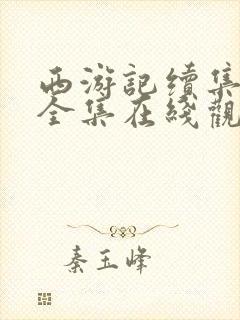 西游記續集
全集在綫觀
秦玉峰